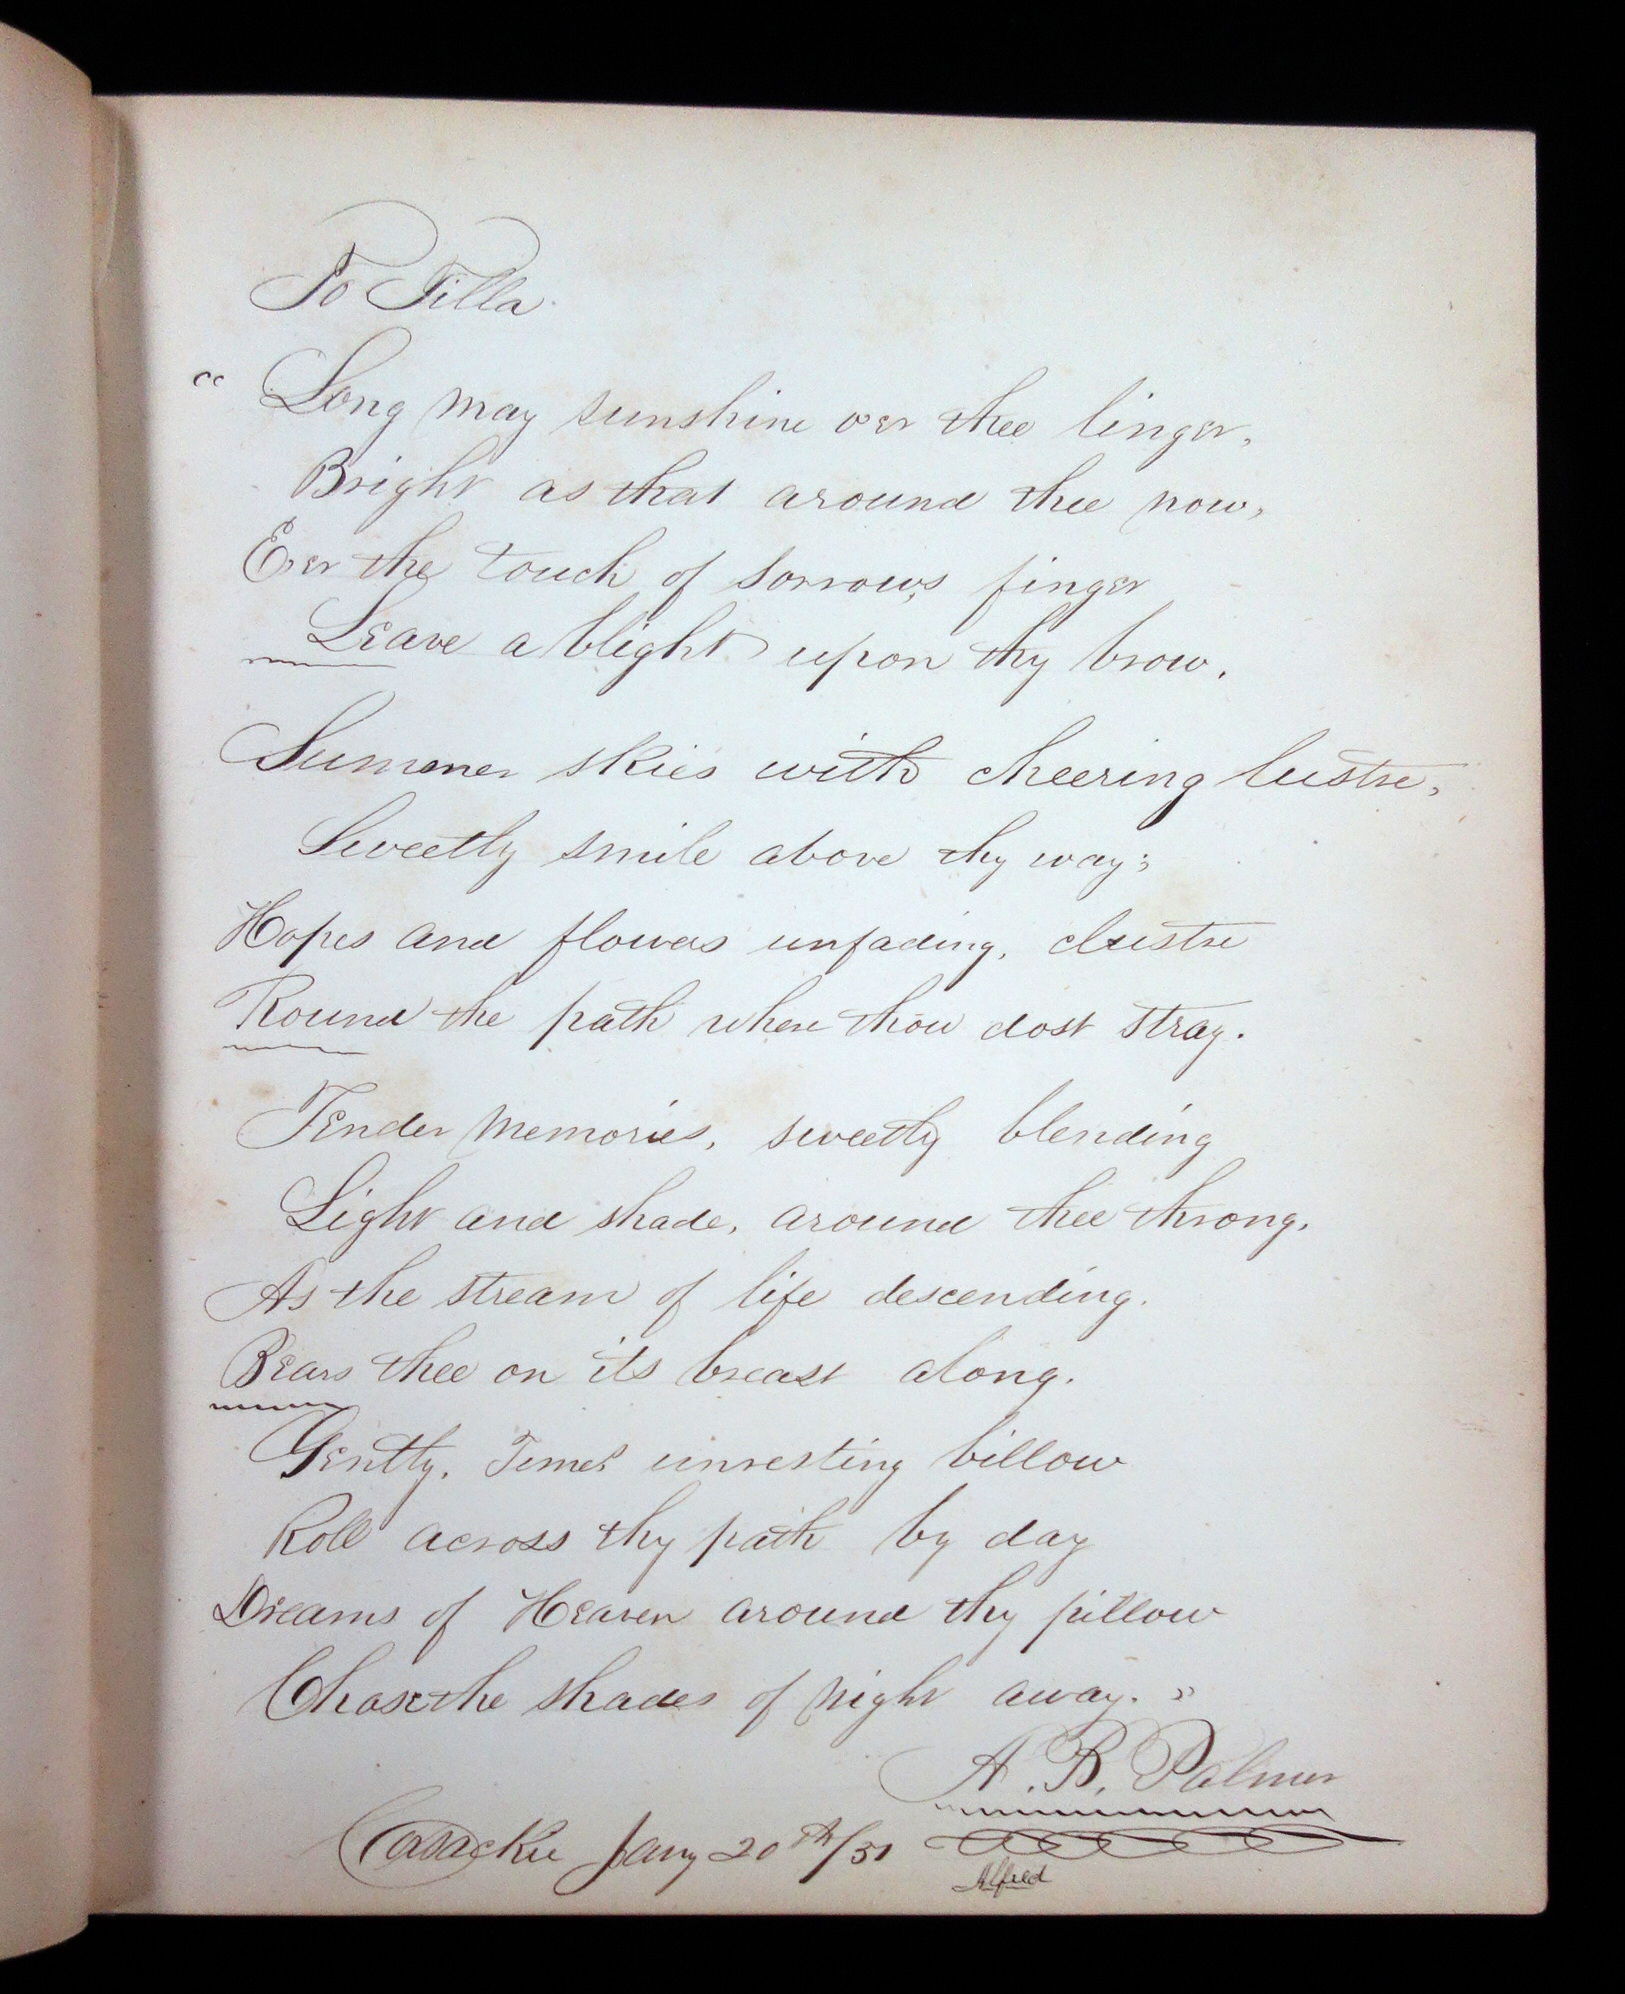 To Tilla
" Long may sunshine o'er thee linger,
Bright as that around thee now,
E'er the touch of sorrow's finger
Leave a blight upon thy brow.
Summer skies with cheering lustre,
Sweetly smile above thy way;
Hopes and flowers unfading, clustre
Round the path where thou dost stray.
Tender memories, sweetly blending
Light and shade, around thee throng.
As the stream of life descending.
Bears thee on its breast along.
Gently, Time's unresting billow
Roll across thy path by day
Dreams of Heaven around thy pillow
Chase the shades of night away. "
A. B. Palmer
Jany 20th/51
Alfred